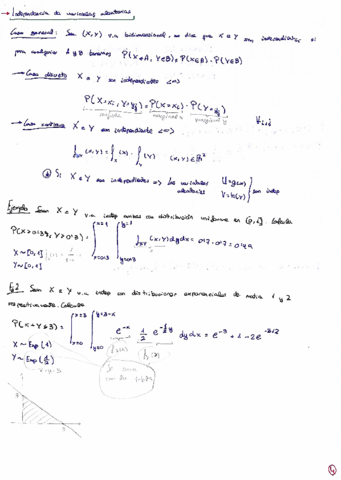 → Independencia de variables aleatorias
Caso general: Sean (X,Y) v.a. bidimensional, se dice que X e Y son independientes si
para cualquier A y B tenemos P(X∈A, Y∈B) = P(X∈A) · P(Y∈B)
→ Caso discreto X e Y son independientes <=>
P(X=xi, Y=yj) = P(X=xi) · P(Y=yj) ∀i,j
conjunta marginal x marginal y
→ Caso continuo X e Y son independientes <=>
f_XY (x,y) = f_X (x) · f_Y (y) (x,y) ∈ ℝ²
Si X e Y son independientes => las variables U=g(x)
aleatorias V=h(y) son indep
Ejemplo Sean X e Y v.a. indep ambas con distribución uniforme en [0,1] calcula
P(X>0.3, Y>0.3) = ∫ x=0.3 x=1 ∫ y=0.3 y=1 f_XY (x,y) dy dx = 0.7 · 0.7 = 0.49
X ~ [0,1]
Y ~ [0,1]
Ej 2 Sean X e Y v.a. indep con distribuciones exponenciales de media 1 y 2
respectivamente. Calcula
P(X+Y≤3) = ∫ x=0 x=3 ∫ y=0 y=3-x e^-x 1/2 e^-1/2 y dy dx = e^-3 + 1 - 2e^-3/2
X ~ Exp (1) f_X(x) f_Y(y)
Y ~ Exp (1/2)
x+y=3
3
3